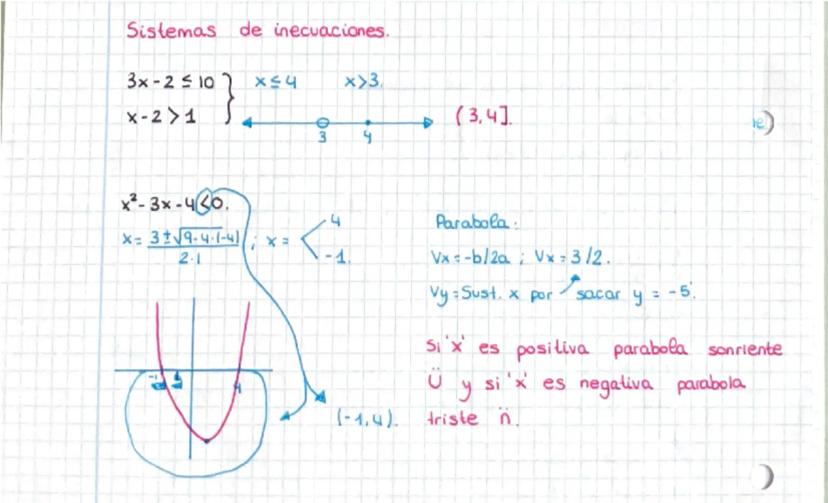 Sistemas de inecuaciones.
3x-2≤10 } x≤4 x>3.
x-2>1
3 4 (3,4].
x²-3x-4<0.
x= 3±√9-4·(-4) / 2·1 ; x = < 4
-1.
Parabola:
Vx=-b/2a ; Vx=3/2.
Vy=Sust. x por sacar y = -5.
Si 'x' es positiva parabola sonriente
Ü y si 'x' es negativa parabola
triste n̈.
4
(-1,4).